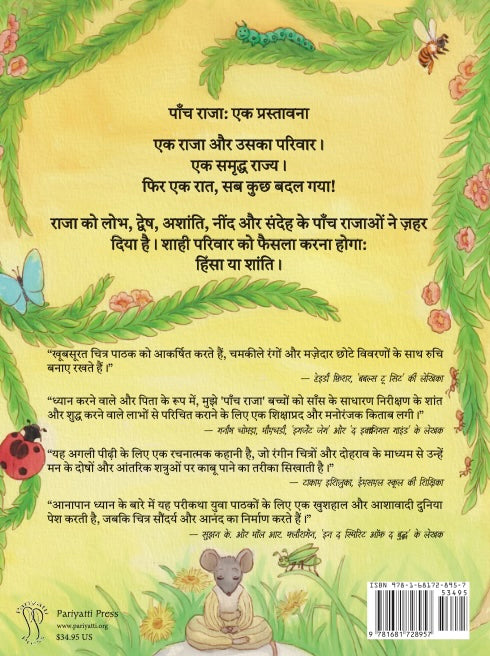 पाँच राजा: एक प्रस्तावना
एक राजा और उसका परिवार।
एक समृद्ध राज्य।
फिर एक रात, सब कुछ बदल गया!
राजा को लोभ, द्वेष, अशांति, नींद और संदेह के पाँच राजाओं ने ज़हर
दिया है। शाही परिवार को फैसला करना होगा:
हिंसा या शांति।
“खूबसूरत चित्र पाठक को आकर्षित करते हैं, चमकीले रंगों और मज़ेदार छोटे विवरणों के साथ रुचि
बनाए रखते हैं।”
— की लेखिका
“ध्यान करने वाले और पिता के रूप में, मुझे 'पाँच राजा' बच्चों को साँस के साधारण निरीक्षण के शांत
और शुद्ध करने वाले लाभों से परिचित कराने के लिए एक शिक्षाप्रद और मनोरंजक किताब लगी।”
— के लेखक
“यह अगली पीढ़ी के लिए एक रचनात्मक कहानी है, जो रंगीन चित्रों और दोहराव के माध्यम से उन्हें
मन के दोषों और आंतरिक शत्रुओं पर काबू पाने का तरीका सिखाती है।”
— स्कूल की शिक्षिका
“आनापान ध्यान के बारे में यह परीकथा युवा पाठकों के लिए एक खुशहाल और आशावादी दुनिया
पेश करती है, जबकि चित्र सौंदर्य और आनंद का निर्माण करते हैं।”
— सुझान के. और पॉल आर. 'इन द स्पिरिट ऑफ द बुद्ध' के लेखक
Pariyatti
Pariyatti Press
www.pariyatti.org
$34.95 US
ISBN 978-1-68172-895-7
53495
9 781681 728957